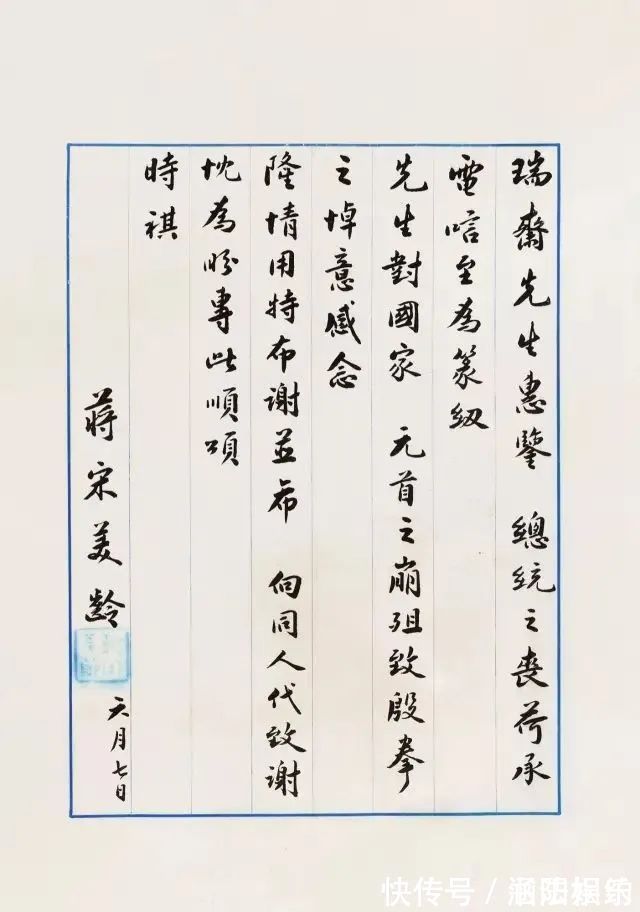 瑞齋先生惠鑒　總統之喪荷承
電唁至為篆紉
先生對國家　元首之崩殂致殷拳
之悼意感念
隆情用特布謝並希　向同人代致謝
忱為盼專此順頌
時祺
蔣宋美齡
六月七日
快传号／